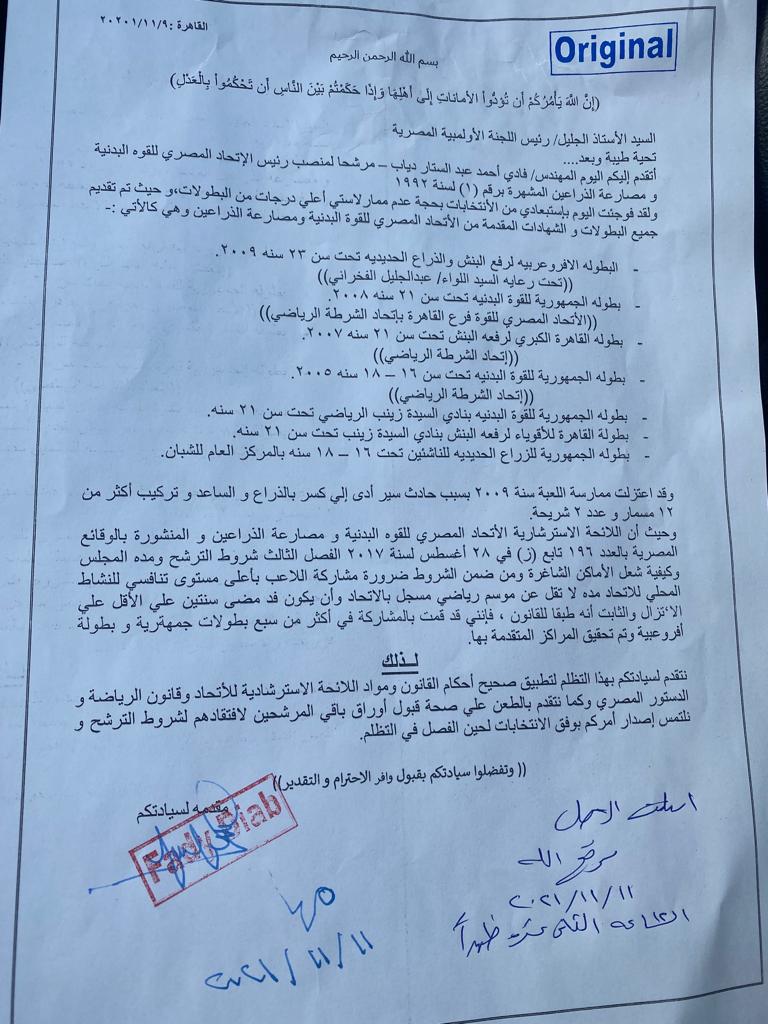 القاهرة :٢٠٢٠١/١١/٩
Original
بسم الله الرحمن الرحيم
(إنَّ اللهَ يَأْمُرُكُمْ أن تُؤدُّواْ الأمَانَاتِ إلَى أهْلِهَا وَإذَا حَكَمْتُمْ بَيْنَ النَّاسِ أن تَحْكُمُواْ بِالْعَدْلِ)
السيد الأستاذ الجليل/ رئيس اللجنة الأولمبية المصرية
تحية طيبة وبعد....
أتقدم إليكم اليوم المهندس/ فادي أحمد عبد الستار دياب – مرشحا لمنصب رئيس الإتحاد المصري للقوه البدنية
و مصارعة الذراعين المشهرة برقم (١) لسنة ١٩٩٢
ولقد فوجئت اليوم بإستبعادي من الأنتخابات بحجة عدم ممارلاستي أعلي درجات من البطولات،و حيث تم تقديم
جميع البطولات و الشهادات المقدمة من الأتحاد المصري للقوة البدنية ومصارعة الذراعين وهي كالأتي :-
- البطوله الافروعربيه لرفع البنش والذراع الحديديه تحت سن ٢٣ سنه ٢٠٠٩.
((تحت رعايه السيد اللواء/ عبدالجليل الفخراني))
- بطوله الجمهورية للقوة البدنيه تحت سن ٢١ سنه ٢٠٠٨.
((الأتحاد المصري للقوة فرع القاهرة بإتحاد الشرطة الرياضي))
- بطوله القاهرة الكبري لرفعه البنش تحت سن ٢١ سنه ٢٠٠٧.
((إتحاد الشرطة الرياضي))
- بطوله الجمهورية للقوة البدنيه تحت سن ١٦ – ١٨ سنه ٢٠٠٥.
((إتحاد الشرطة الرياضي))
- بطوله الجمهورية للقوة البدنيه بنادي السيدة زينب الرياضي تحت سن ٢١ سنه.
- بطولة القاهرة للأقوياء لرفعه البنش بنادي السيدة زينب تحت سن ٢١ سنه.
- بطوله الجمهورية للزراع الحديديه للناشئين تحت ١٦ – ١٨ سنه بالمركز العام للشبان.
وقد اعتزلت ممارسة اللعبة سنة ٢٠٠٩ بسبب حادث سير أدى إلي كسر بالذراع و الساعد و تركيب أكثر من
١٢ مسمار و عدد ٢ شريحة.
وحيث أن اللائحة الاسترشارية الأتحاد المصري للقوه البدنية و مصارعة الذراعين و المنشورة بالوقائع
المصرية بالعدد ١٩٦ تابع (ز) في ٢٨ أغسطس لسنة ٢٠١٧ الفصل الثالث شروط الترشح ومده المجلس
وكيفية شغل الأماكن الشاغرة ومن ضمن الشروط ضرورة مشاركة اللاعب بأعلى مستوى تنافسي للنشاط
المحلي للاتحاد مده لا تقل عن موسم رياضي مسجل بالاتحاد وأن يكون فد مضى سنتين علي الأقل علي
الا‘تزال والثابت أنه طبقا للقانون ، فإنني قد قمت بالمشاركة في أكثر من سبع بطولات جمهترية و بطولة
أفروعبية وتم تحقيق المراكز المتقدمة بها.
لــذلك
نتقدم لسيادتكم بهذا التظلم لتطبيق صحيح أحكام القانون ومواد اللائحة الاسترشادية للأتحاد وقانون الرياضة و
الدستور المصري وكما نتقدم بالطعن علي صحة قبول أوراق باقي المرشحين لافتقادهم لشروط الترشح و
نلتمس إصدار أمركم بوفق الانتخابات لحين الفصل في التظلم.
(( وتفضلوا سيادتكم بقبول وافر الاحترام و التقدير))
مقدمه لسيادتكم
Fady Diab
استلمت الاصل
٢٠٢١/١١/١١
الساعه الثانية عشرة ظهراً
٢٠٢١/١١/١١